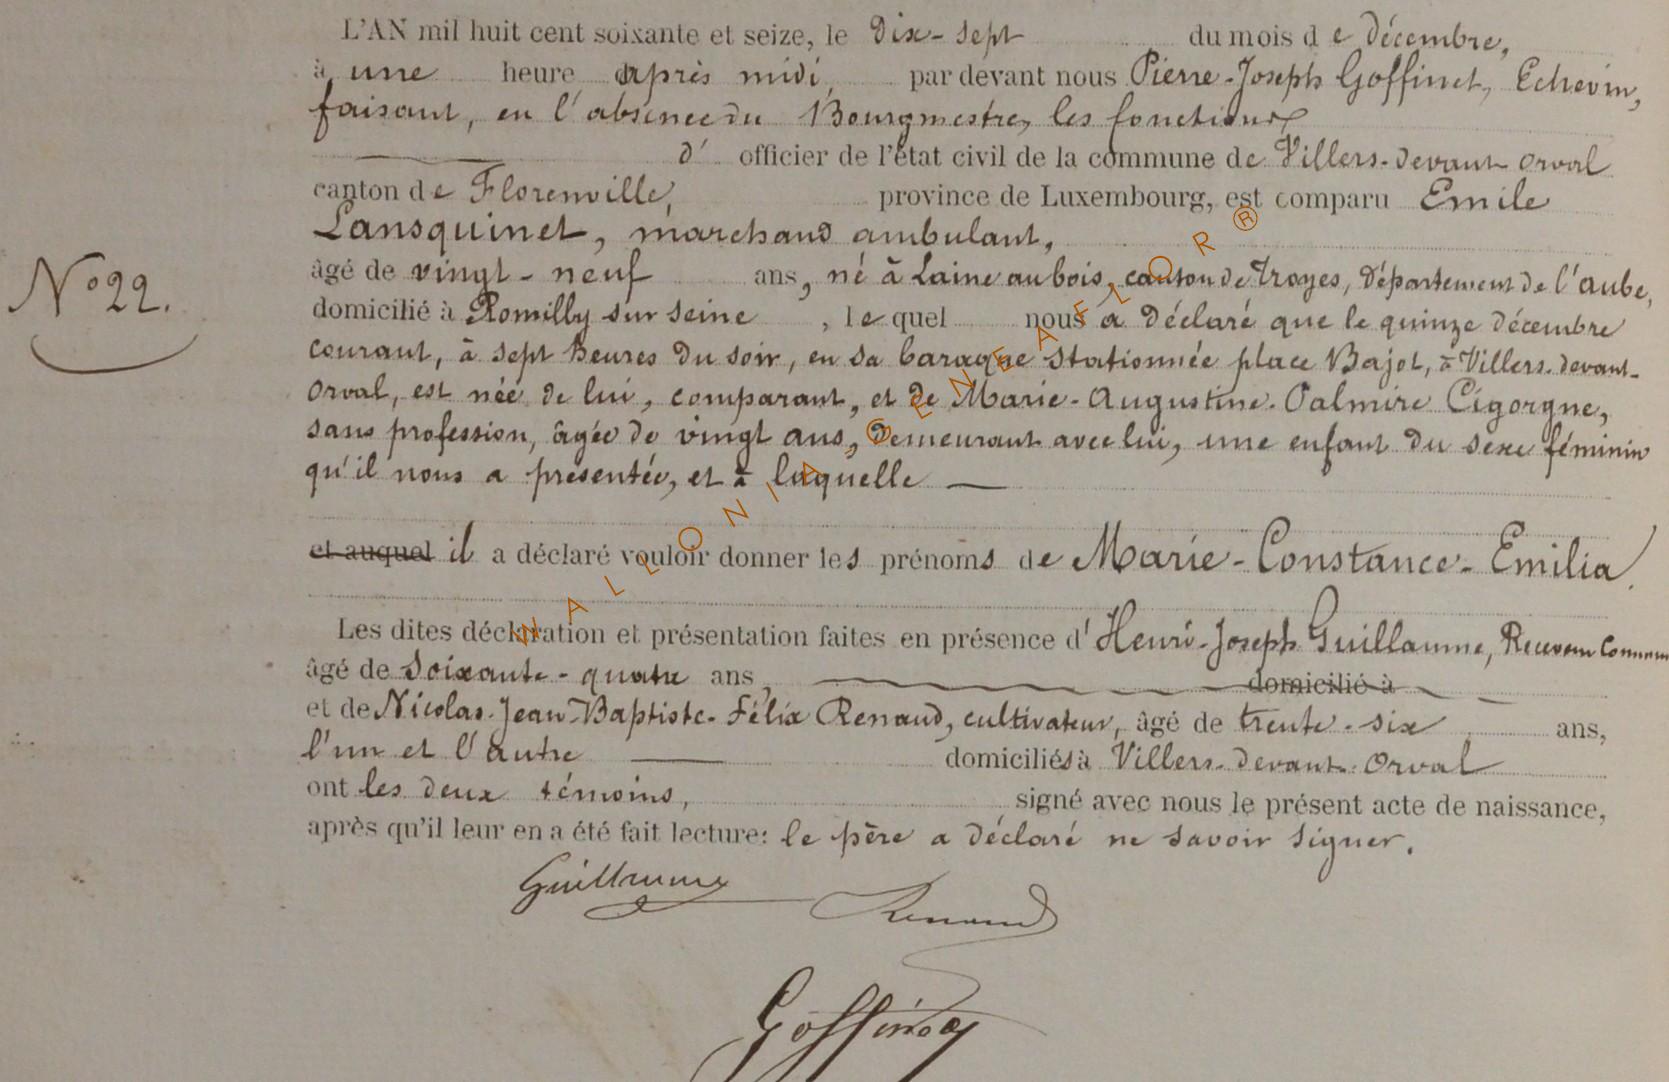 L'AN mil huit cent soixante et seize, le Dix-sept du mois de Décembre,
à une heure après midi, par devant nous Pierre-Joseph Goffinet, Echevin,
faisant, en l'absence du Bourgmestre, les fonctions
d' officier de l'état civil de la commune de Villers-devant-Orval
canton de Florenville, province de Luxembourg, est comparu Emile
Lansquinet, marchand ambulant,
N° 22.
âgé de vingt-neuf ans, né à Laine au bois, canton de Troyes, Département de l'aube,
domicilié à Romilly sur Seine, lequel nous a déclaré que le quinze décembre
courant, à sept heures du soir, en sa baraque stationnée place Bajot, à Villers-devant-
Orval, est née de lui, comparant, et de Marie-Augustine-Palmire Cigorgne,
sans profession, âgée de vingt ans, demeurant avec lui, une enfant du sexe féminin
qu'il nous a présentée, et à laquelle
et auquel il a déclaré vouloir donner les prénoms de Marie-Constance-Emilia.
Les dites déclaration et présentation faites en présence d'Henri-Joseph Guillaume, Receveur
âgé de soixante-quatre ans, domicilié à
et de Nicolas-Jean-Baptiste-Félix Renaud, cultivateur, âgé de trente-six ans,
l'un et l'autre domiciliés à Villers-devant-Orval
ont les deux témoins, signé avec nous le présent acte de naissance,
après qu'il leur en a été fait lecture: le père a déclaré ne savoir signer.
Guillaume Renaud
Goffinet
WALLONIA GENEAFLOR ®